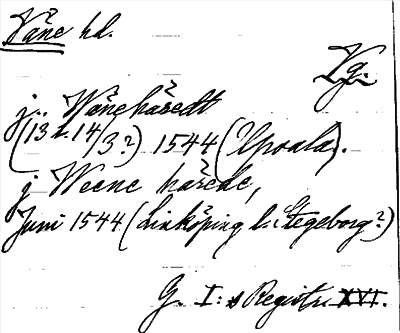 Våne hd.
Vg.
j. Wåneháredt
(13 l. 14/3?) 1544 (Upsala).
j Weene hárede,
Juni 1544 (Linköping l. Stegeborg?)
G. I:s Registr. XVI.